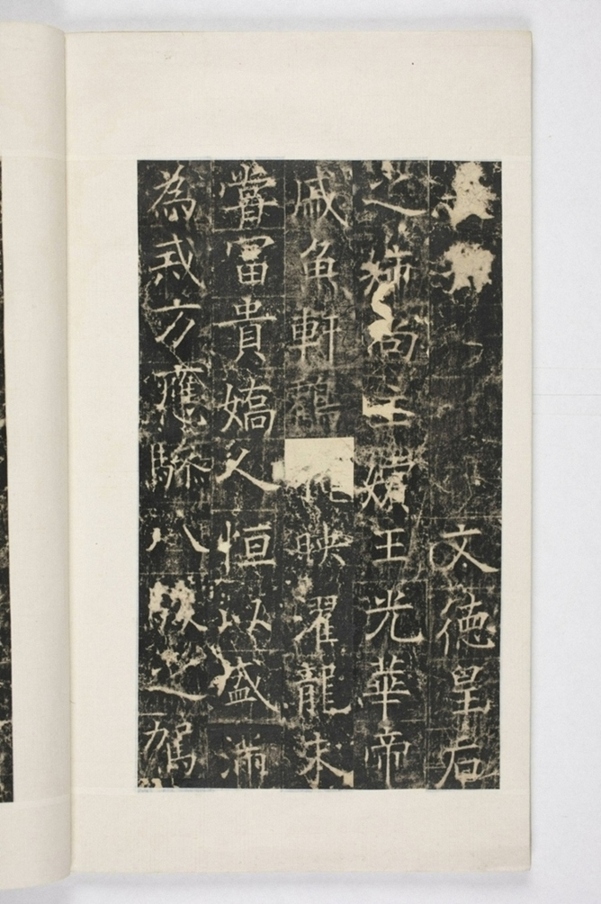 文德皇后
之姉尚主嬪王光華帝
戚魚軒鶴映濯龍未
嘗冨貴嬌人恒以盛滿
為戒方應驂八駿之駕